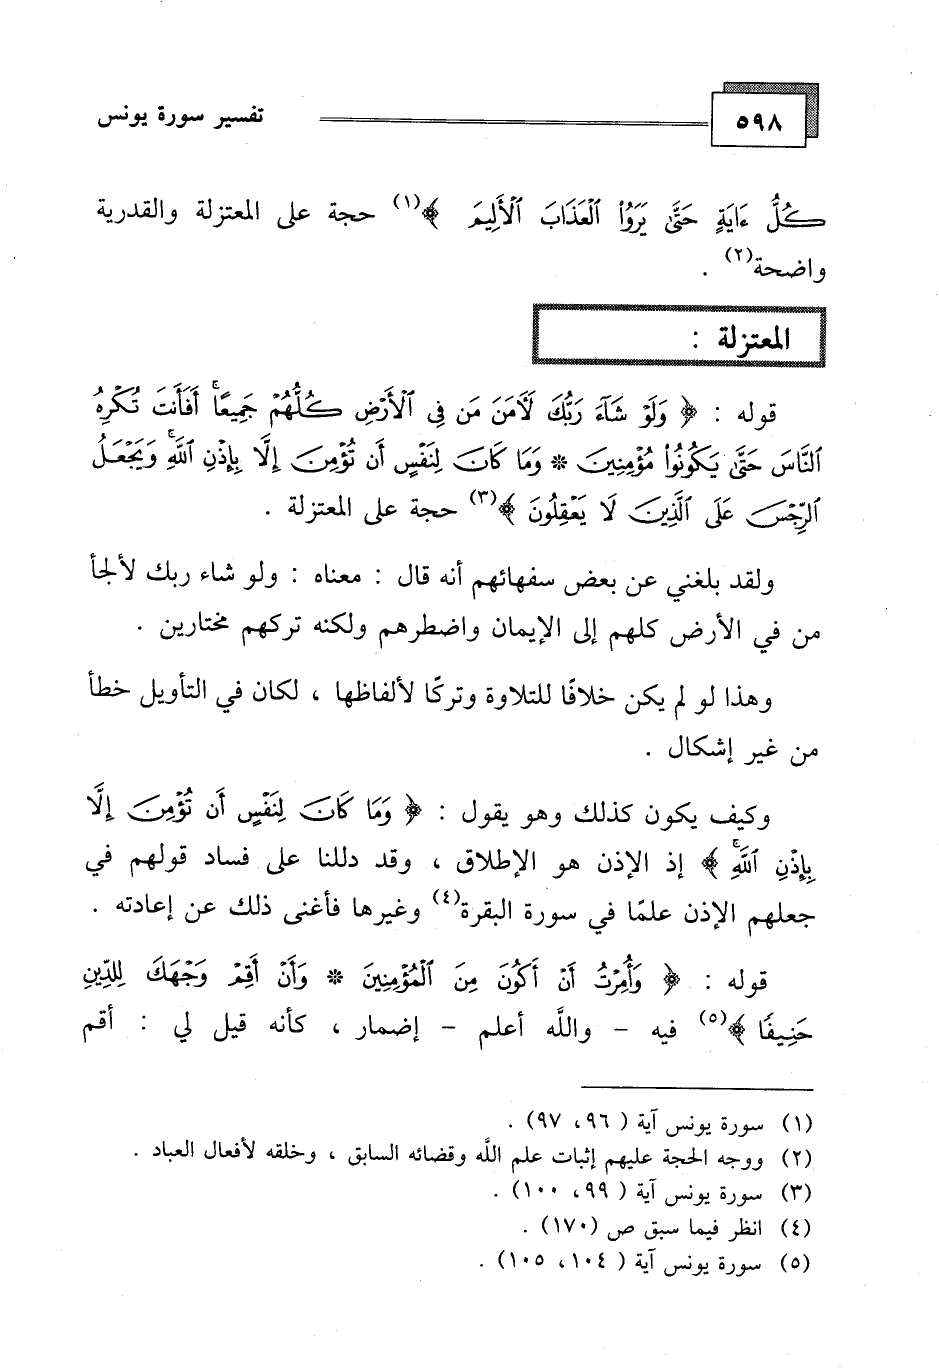 ٥٩٨ تفسير سورة يونس
كُلُّ ءَايَةٍ حَتَّىٰ يَرَوُا۟ ٱلْعَذَابَ ٱلْأَلِيمَ ﴾(١) حجة على المعتزلة والقدرية
واضحة(٢) .
المعتزلة :
قوله : ﴿ وَلَوْ شَآءَ رَبُّكَ لَءَامَنَ مَن فِى ٱلْأَرْضِ كُلُّهُمْ جَمِيعًا ۚ أَفَأَنتَ تُكْرِهُ
ٱلنَّاسَ حَتَّىٰ يَكُونُوا۟ مُؤْمِنِينَ * وَمَا كَانَ لِنَفْسٍ أَن تُؤْمِنَ إِلَّا بِإِذْنِ ٱللَّهِ ۚ وَيَجْعَلُ
ٱلرِّجْسَ عَلَى ٱلَّذِينَ لَا يَعْقِلُونَ ﴾(٣) حجة على المعتزلة .
ولقد بلغني عن بعض سفهائهم أنه قال : معناه : ولو شاء ربك لألجأ
من في الأرض كلهم إلى الإيمان واضطرهم ولكنه تركهم مختارين .
وهذا لو لم يكن خلافًا للتلاوة وتركًا لألفاظها ، لكان في التأويل خطأ
من غير إشكال .
وكيف يكون كذلك وهو يقول : ﴿ وَمَا كَانَ لِنَفْسٍ أَن تُؤْمِنَ إِلَّا
بِإِذْنِ ٱللَّهِ ۚ ﴾ إذ الإذن هو الإطلاق ، وقد دللنا على فساد قولهم في
جعلهم الإذن علمًا في سورة البقرة(٤) وغيرها فأغنى ذلك عن إعادته .
قوله : ﴿ وَأُمِرْتُ أَنْ أَكُونَ مِنَ ٱلْمُؤْمِنِينَ * وَأَنْ أَقِمْ وَجْهَكَ لِلدِّينِ
حَنِيفًا ﴾(٥) فيه - واللَّه أعلم - إضمار ، كأنه قيل لي : أقم
(١) سورة يونس آية ( ٩٦، ٩٧) .
(٢) ووجه الحجة عليهم إثبات علم اللَّه وقضائه السابق ، وخلقه لأفعال العباد .
(٣) سورة يونس آية ( ٩٩، ١٠٠) .
(٤) انظر فيما سبق ص (١٧٠) .
(٥) سورة يونس آية ( ١٠٤، ١٠٥) .